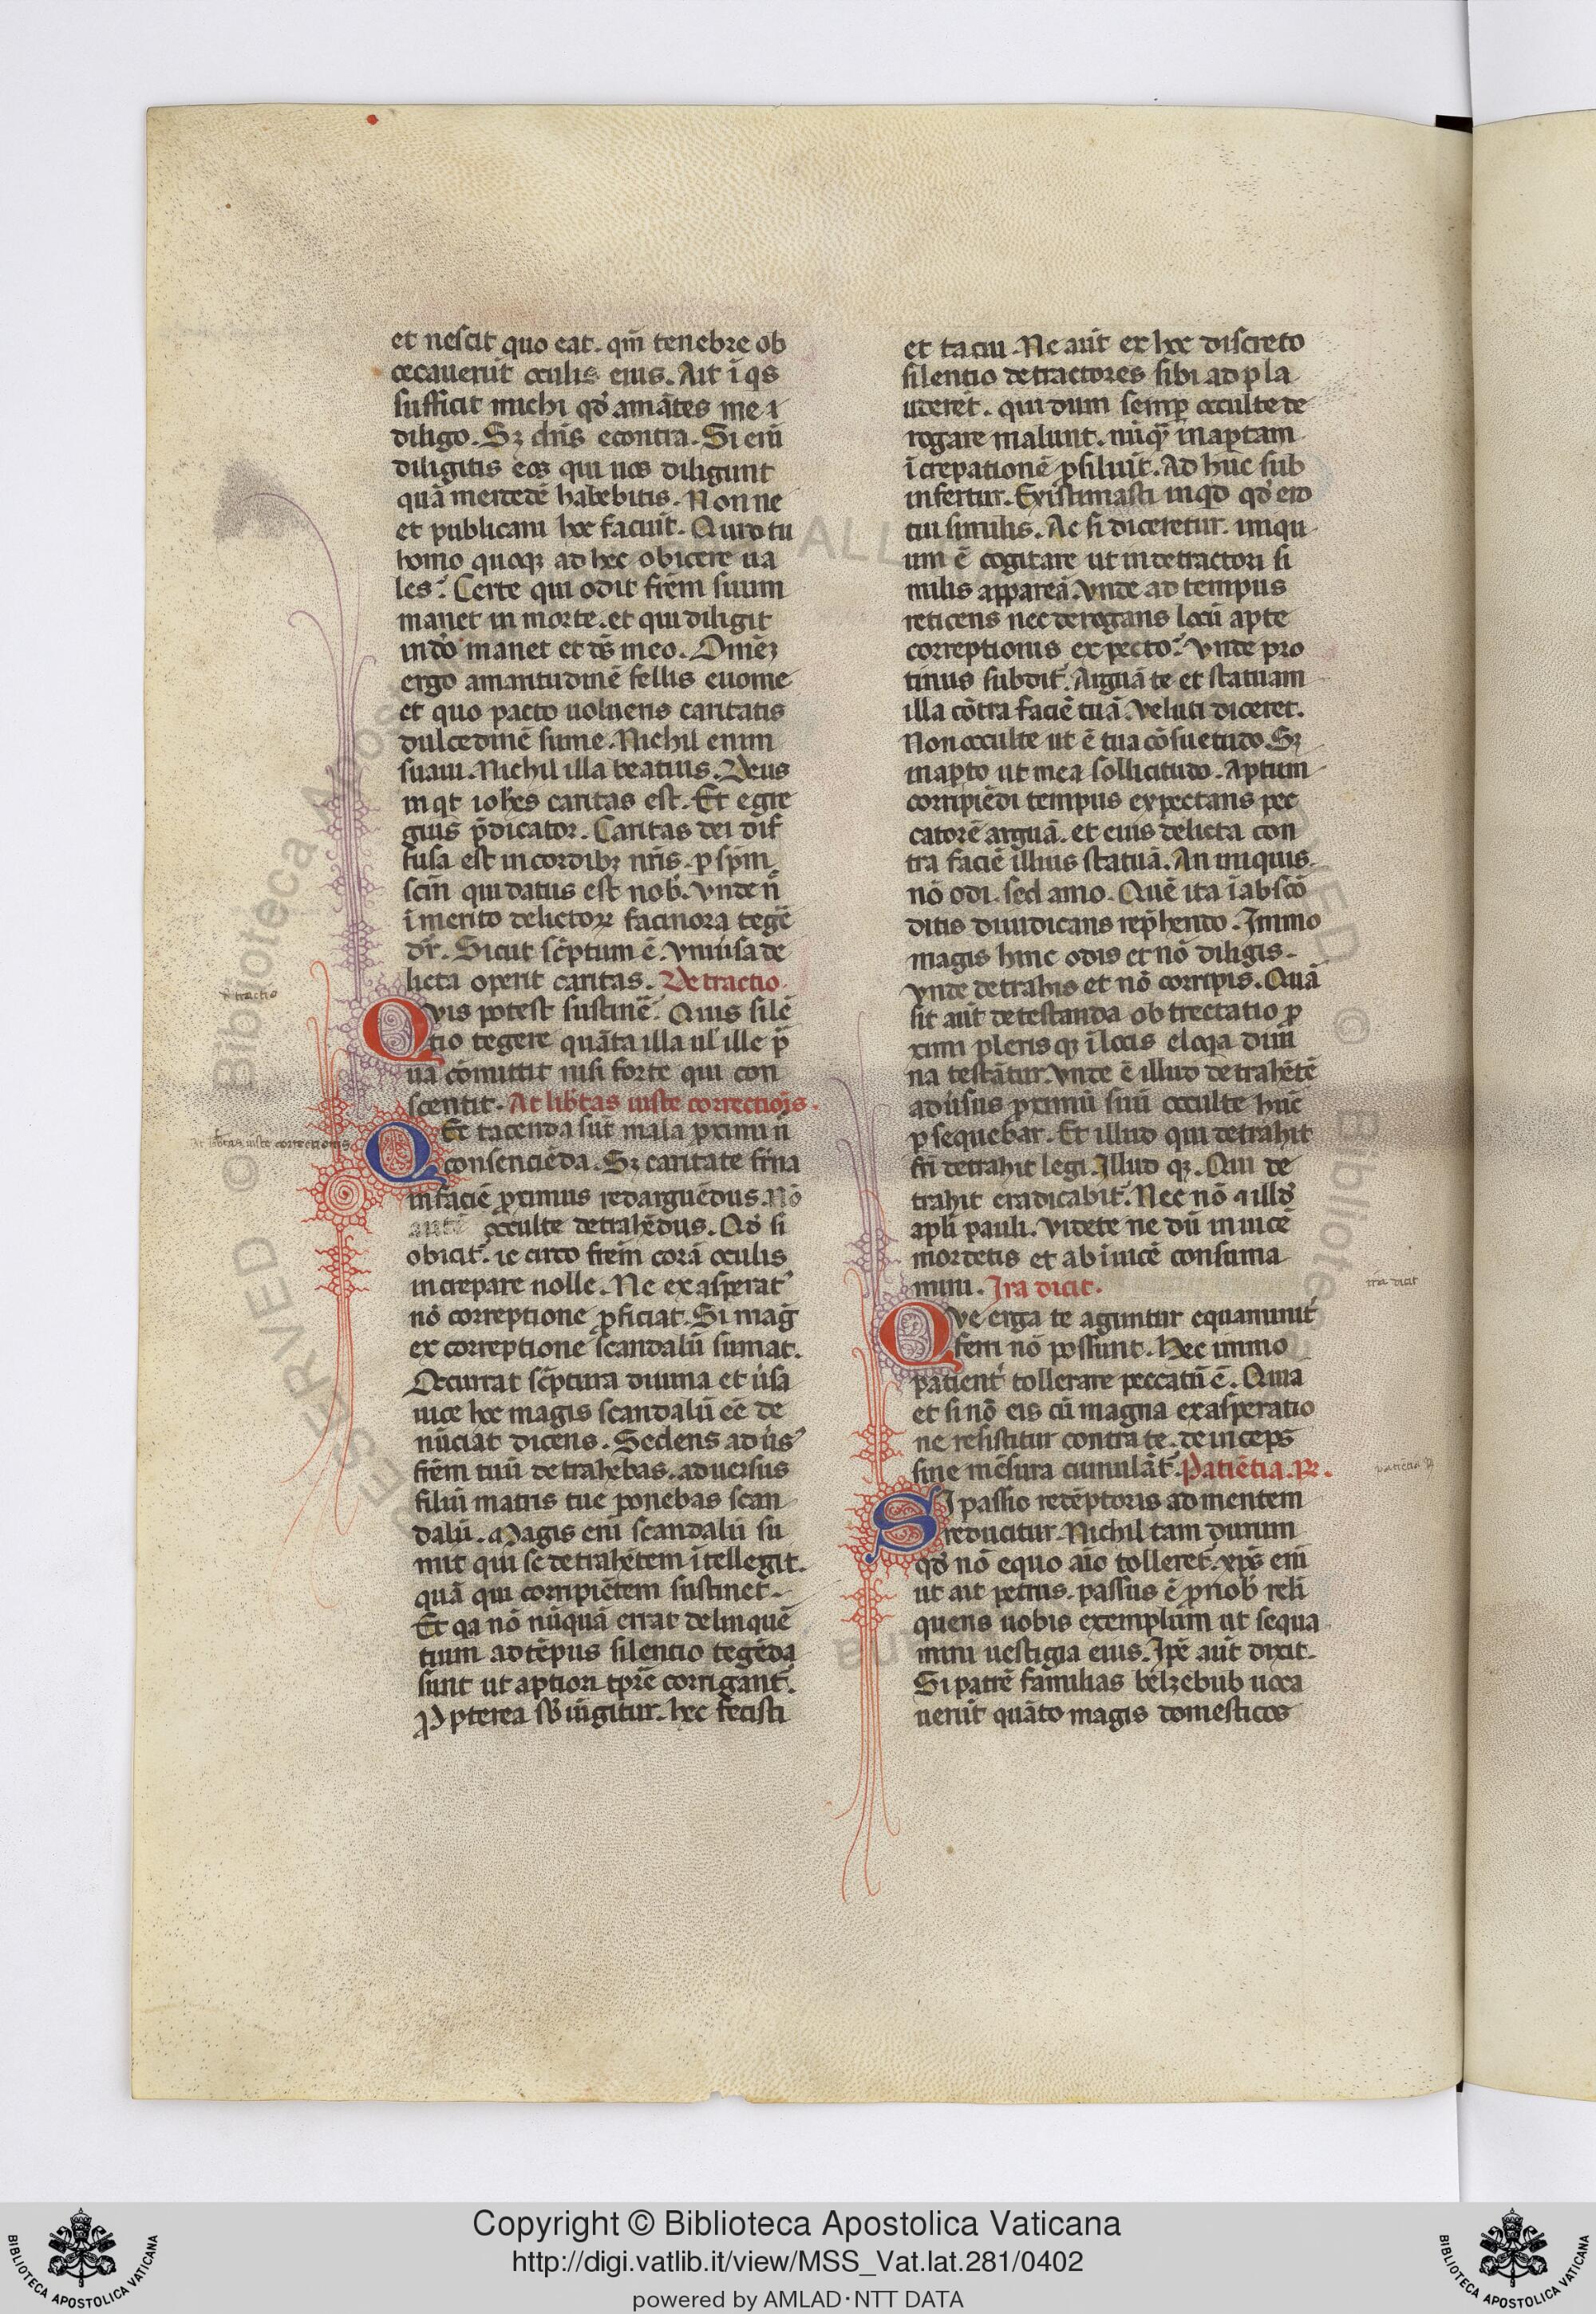 et nescit quo eat. qm̄ tenebre ob
cecauerūt oculis eius. Ait ī qs
sufficit michi qd̓ amātes me ⁊
diligo. Sꝫ dn̄s econtra. Si eni̅
diligitis eos qui uos diligunt
quā mercedē habebitis. Nonne
et publicani hoc faciūt. Qur̄o tu
homo quoqꝫ ad hec obicere ua
les? Certe qui odit frēm suum
manet in morte. et qui diligit
in dō manet et ds̄ in eo. Omēꝫ
ergo amaritudinē fellis euome
et quo pacto uolueris caritatis
dulcedinē sume. Nichil enim
suaui. Nichil illa beatius. Deus
inqt ioh̄es caritas est. Et egre
gius p̄dicator. Caritas dei dif
fusa est in cordibꝫ nr̄is. ꝑ sp̄m
scm̄ qui datus est nob̓. Vnde n̄
ī merito delictoꝝ facinora tegē
dr̄. Sicut sc̄ptum ē. Vniu̓sa de
licta operit caritas. Detractio.
Qvis potest sustinē. Quis silē
tio tegere quāta illa ul̓ ille p̄
ua cōmittit nisi forte qui con
scentit. At lib̄tas iuste correctiōis.
Q Et tacenda sūt mala ꝓximi n̄
consenciēda. Sꝫ caritate frn̄a
in faciē ꝓximus redarguēdus. Nō
autē occulte detrahēdus. Qd̓ si
obicit᷑. ic circo frēm corā oculis
increpare nolle. Ne exasperat᷑
nō correptione ꝓficiat. Si mag̓
ex correptione scandalū sumat.
Occurrat sc̄ptura diuina et u̓sa
uice hoc magis scandalū eē de
nūciat dicens. Sedens adu̓s᷑
frēm tuū detrahebas. aduersus
filiū matris tue ponebas scan
dalū. Magis eni̅ scandalū su
mit qui se detrahētem ītellegit.
quā qui corripiētem sustinet.
Et qa nō nūquā errat delinquē
tium ad tēpus silentio tegēda
sunt ut aptiori tp̄re corrigant᷑.
Ꝓpterea sb̓ iūgitur. hec fecisti
et tacui. Ne aūt ex hoc discreto
silentio detractores sibi ad pla
uderēt. qui dum semꝑ occulte de
rogare malunt. nūqꝫ in aꝑtam
īcrepationē ꝓsiluīt. Ad huc sub
infertur. Existimasti inqd̓ qd̓ ero
tui similis. Ac si diceretur. iniqu
um ē cogitare ut in detractori si
milis appareā. Vnde ad tempus
reticens nec derogans locū apte
correptionis expecto? Vnde pro
tinus subdit᷑. Arguā te et statuam
illa cōtra faciē tuā. Veluti diceret.
Non occulte ut ē tua cōsuetudo. Sꝫ
in aꝑto ut mea sollicitudo. Aptum
corripiēdi tempus expectans pec
catorē arguā. et eius delicta con
tra faciē illius statuā. An iniquis
nō odi. sed amo. Quē ita ī abscō
ditis diiudicans repͤhendo. Immo
magis hinc odis et nō diligis.
vnde detrahis et nō corripis. Quā
sit aūt detestanda obtrectatio ꝓ
ximi plerisqꝫ ī locis eloqa diui
na testātur. Vnde ē illud detrahētē
adu̓sus ꝓximū suū occulte hūc
ꝑsequebar. Et illud qui detrahit
fr̄i detrahit legi. Illud qꝫ. Qui de
trahit eradicabit᷑. Nec nō ⁊ illd̓
apl̄i pauli. Videte ne dū inuicē
mordetis et ab īuicē consuma
mini. Ira dicit.
Qve erga te aguntur equanimit᷑
ferri nō possunt. Hec immo
patient᷑ tollerare peccatū ē. Quia
et si nō eis cū magna exasperatio
ne resistitur contra te. deinceps
sine mēsura cumulāt᷑. Patiētia. R̄.
SI passio redēptoris ad mentem
reducitur. Nichil tam durum
qd̓ nō equo aīo tolleret᷑. xp̄s eni̅
ut ait petrus. passus ē ꝓ nob̓ reli
quens uobis exemplum ut sequa
mini uestigia eius. Ipē aūt dixit.
Si patrē familias belzebub uoca
uerūt quāto magis domesticos
detractio
At lib̄tas iuste correctionis
ira dicit
patiētia R̄
Copyright © Biblioteca Apostolica Vaticana
http://digi.vatlib.it/view/MSS_Vat.lat.281/0402
powered by AMLAD·NTT DATA
BIBLIOTECA APOSTOLICA VATICANA
BIBLIOTECA APOSTOLICA VATICANA